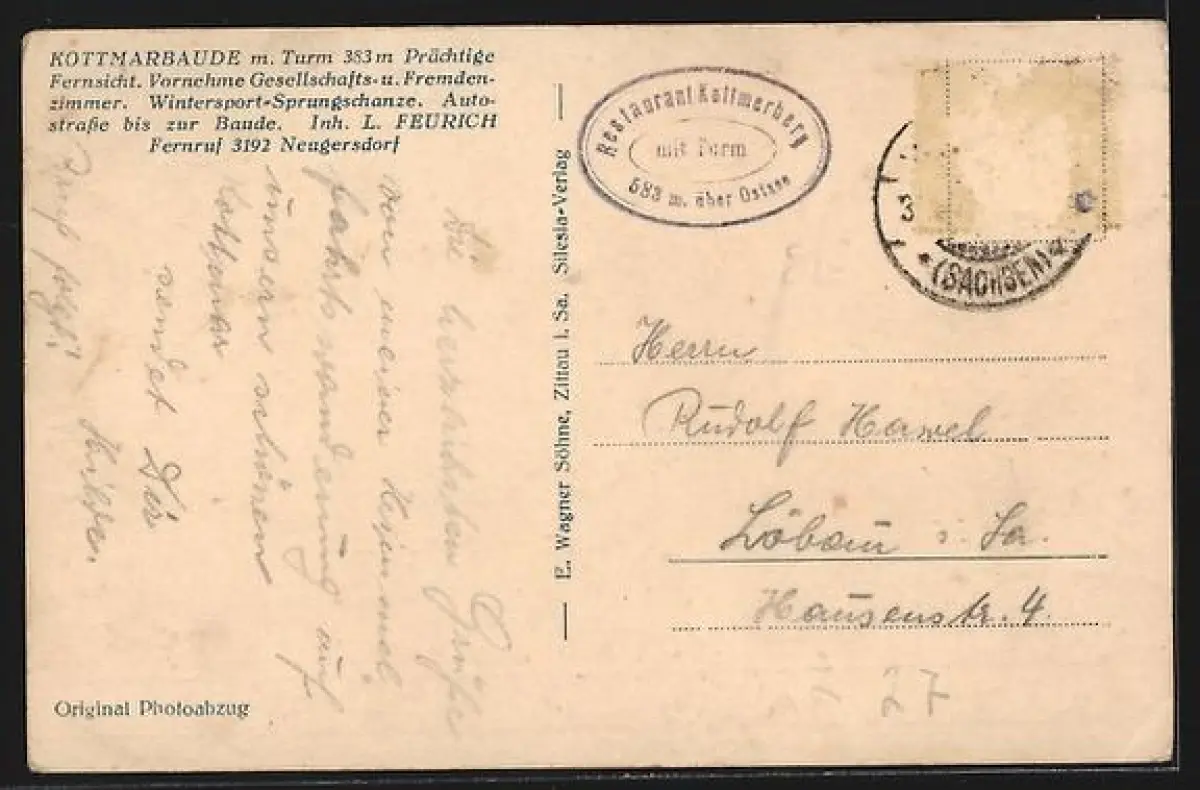 KOTTMARBAUDE m. Turm 383 m Prächtige
Fernsicht. Vornehme Gesellschafts- u. Fremden-
zimmer. Wintersport-Sprungschanze. Auto-
straße bis zur Baude. Inh. L. FEURICH
Fernruf 3192 Neugersdorf
Die herzlichsten Grüße
von meiner Himmel
fahrtswanderung auf
unsern schönen
Kottmar
sendet Dir
Brief folgt!
Original Photoabzug
E. Wagner Söhne, Zittau i. Sa. Silesia-Verlag
Restaurant Kottmerberg
mit Turm
583 m. über Ostsee
3
(SACHSEN)
Herrn
Rudolf Hawel
Löbau i. Sa.
Hausenstr. 4